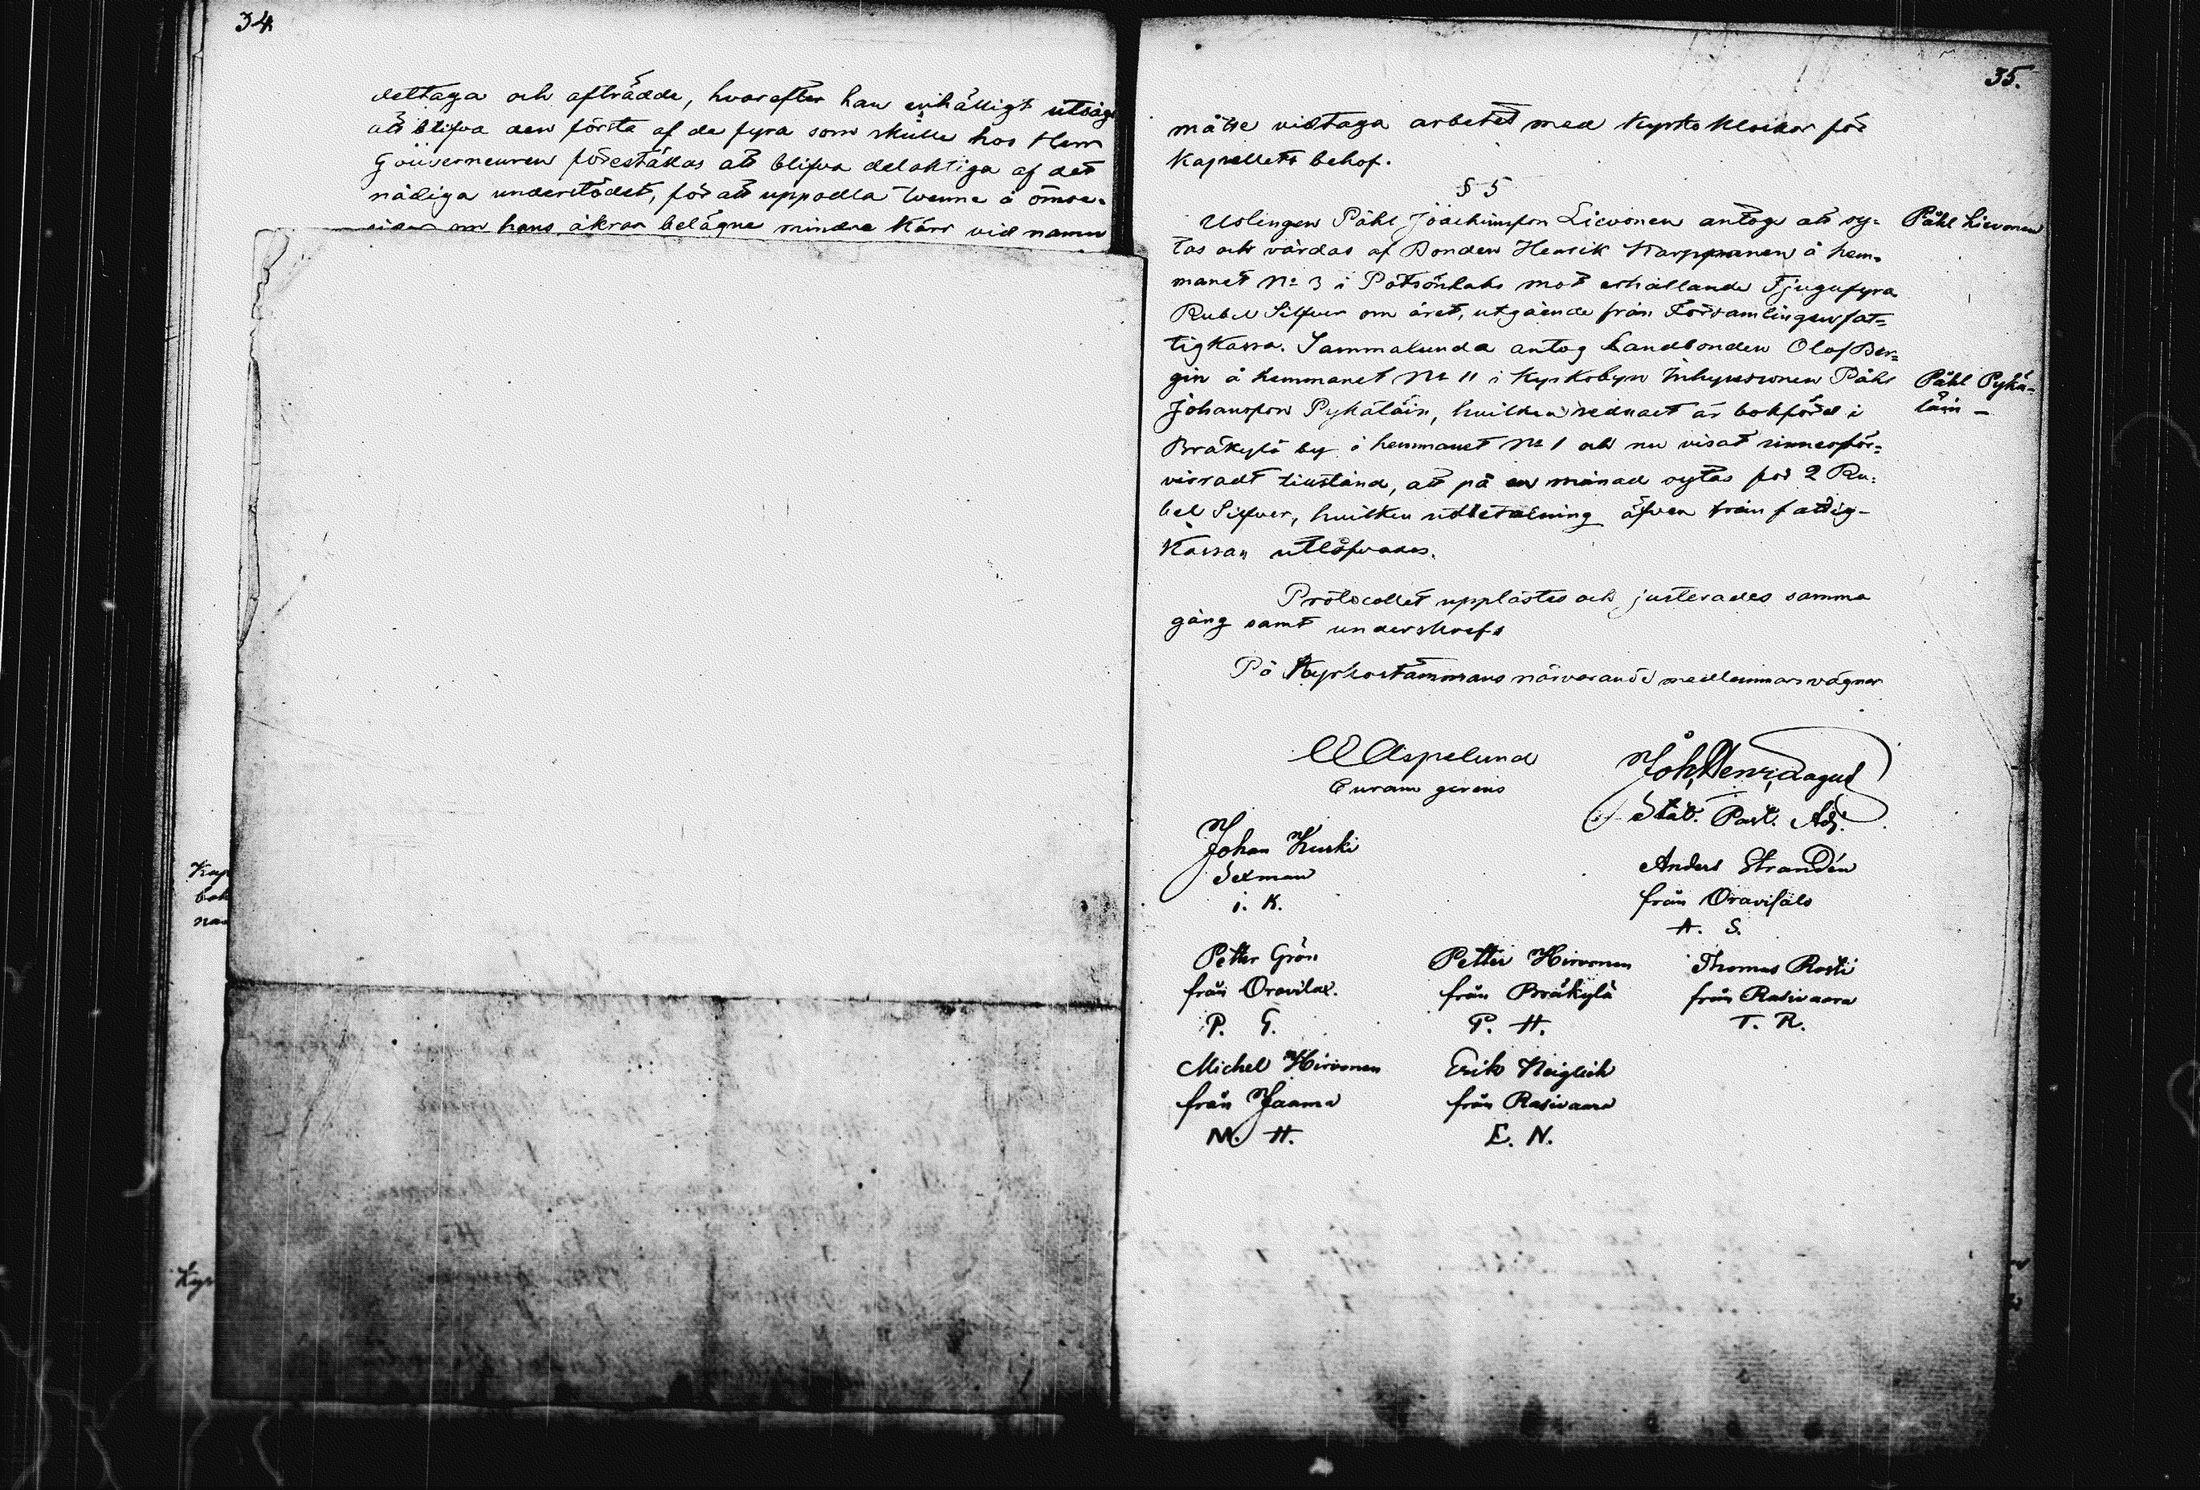 34.
deltaga och afträdde, hvarefter han enhälligt utsågs
att blifva den första af de fyra som skulle hos Herr
Gouverneuren föreställas att blifva delaktiga af det
nådiga understödet, för att uppodla tvenne å ömse-
sidor om hans åkrar belägne mindre Kärr vid namn
Kap
bok
nas
Kyr
35.
måtte vidtaga arbetet med Kyrko Klockor för
Kapellets behof.
§ 5
Ynglingen Påhl Joachimsson Lievonen antogs att sy-
tas och vårdas af Bonden Henrik Karppanen å hem-
manet No 3 i Potsönlaks mot erhållande Tjugufyra
Rubel Silfver om året, utgående från Församlingens fat-
tigKassa. Sammalunda antog Landbonden Olof Ber-
gin å hemmanet No 11 i Kyrkobyn Inhysesonen Påhl
Johansson Pykäläin, hvilken sednast är bokförd i
Bräkylä by å hemmanet No 1 och nu visat sinnesför-
virradt tillstånd, att på en månad sytas för 2 Ru-
bel Silfver, hvilken utbetalning äfven från fattig-
Kassan utlofvades.
Påhl Lievonen
Påhl Pykä-
läin —
Protocollet upplästes och justerades samma
gång samt underskrefs
På Kyrkostämmans närvarande medlemmars vägnar
Aspelund
Curam gerens
Joh. Henr. Aagud
Stät. Past. Adj.
Johan Kurki
Sexman
i. K.
Anders Strandén
från Oravisalo
A. S.
Petter Grön
från Oravilax.
P. G.
Petter Hirvonen
från Bräkylä
P. H.
Thomas Rosti
från Rasivaara
T. R.
Michel Hirvonen
från Jaama
M. H.
Erik Neiglick
från Rasivaara
E. N.